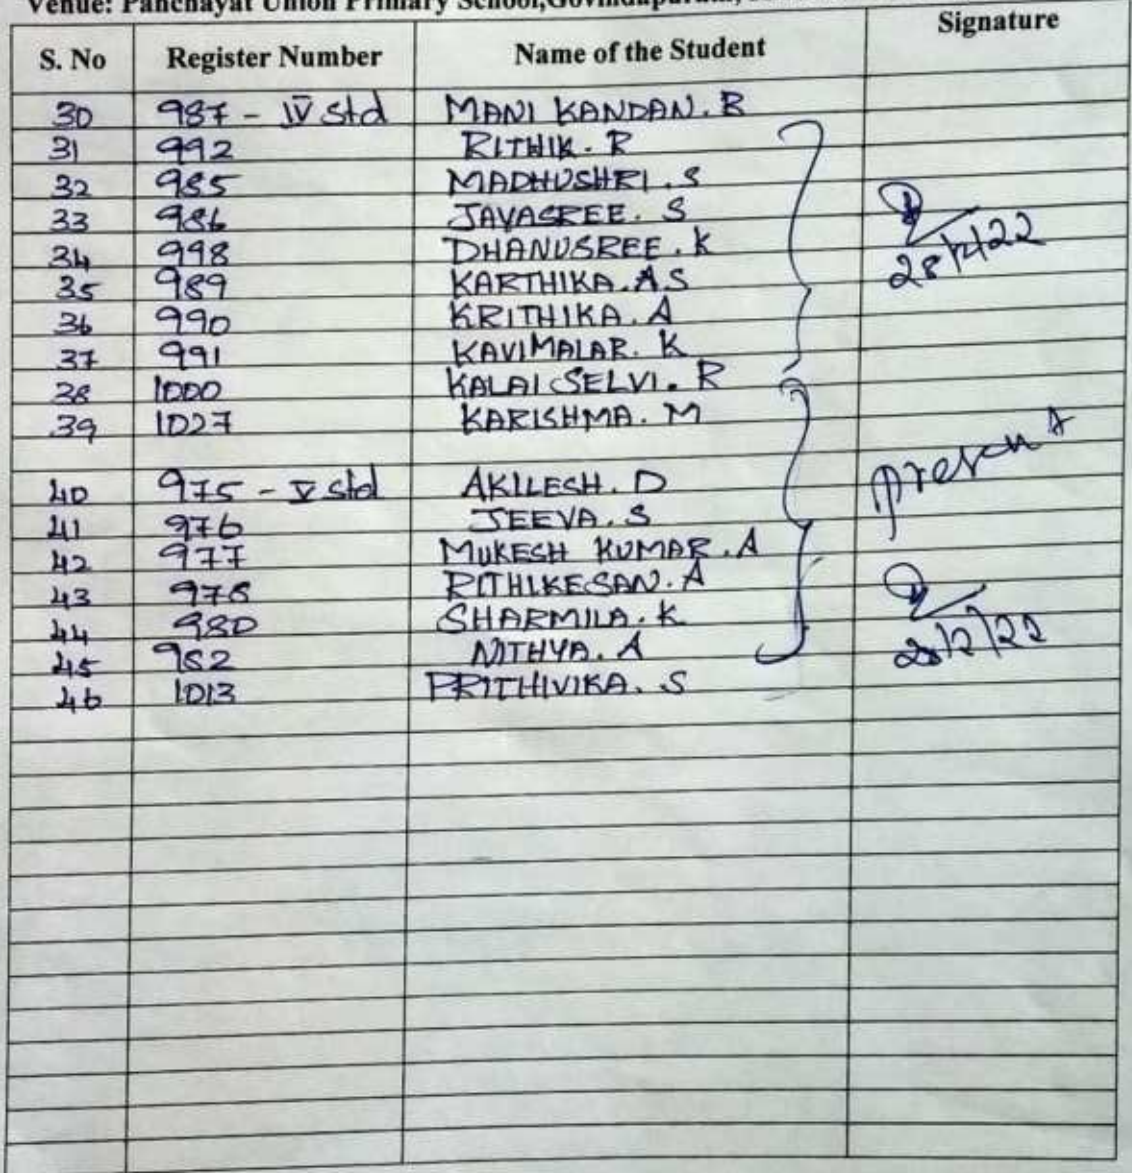 Venue: Panchayat Union Primary School,Govindapuram,
S. No Register Number Name of the Student Signature
30 987 - IV std MANI KANDAN. B
31 992 RITHIK. R
32 985 MADHUSHRI. S
33 986 JAYASREE. S
34 998 DHANUSREE. K
35 989 KARTHIKA. A S
28/2/22
36 990 KRITHIKA. A
37 991 KAVIMALAR. K
38 1000 KALAI SELVI. R
39 1027 KARISHMA. M
present
40 975 - V std AKILESH. D
41 976 JEEVA. S
42 977 MUKESH KUMAR. A
43 978 RITHIKESAN. A
44 980 SHARMILA. K
28/2/22
45 982 NITHYA. A
46 1013 PRITHIVIKA. S